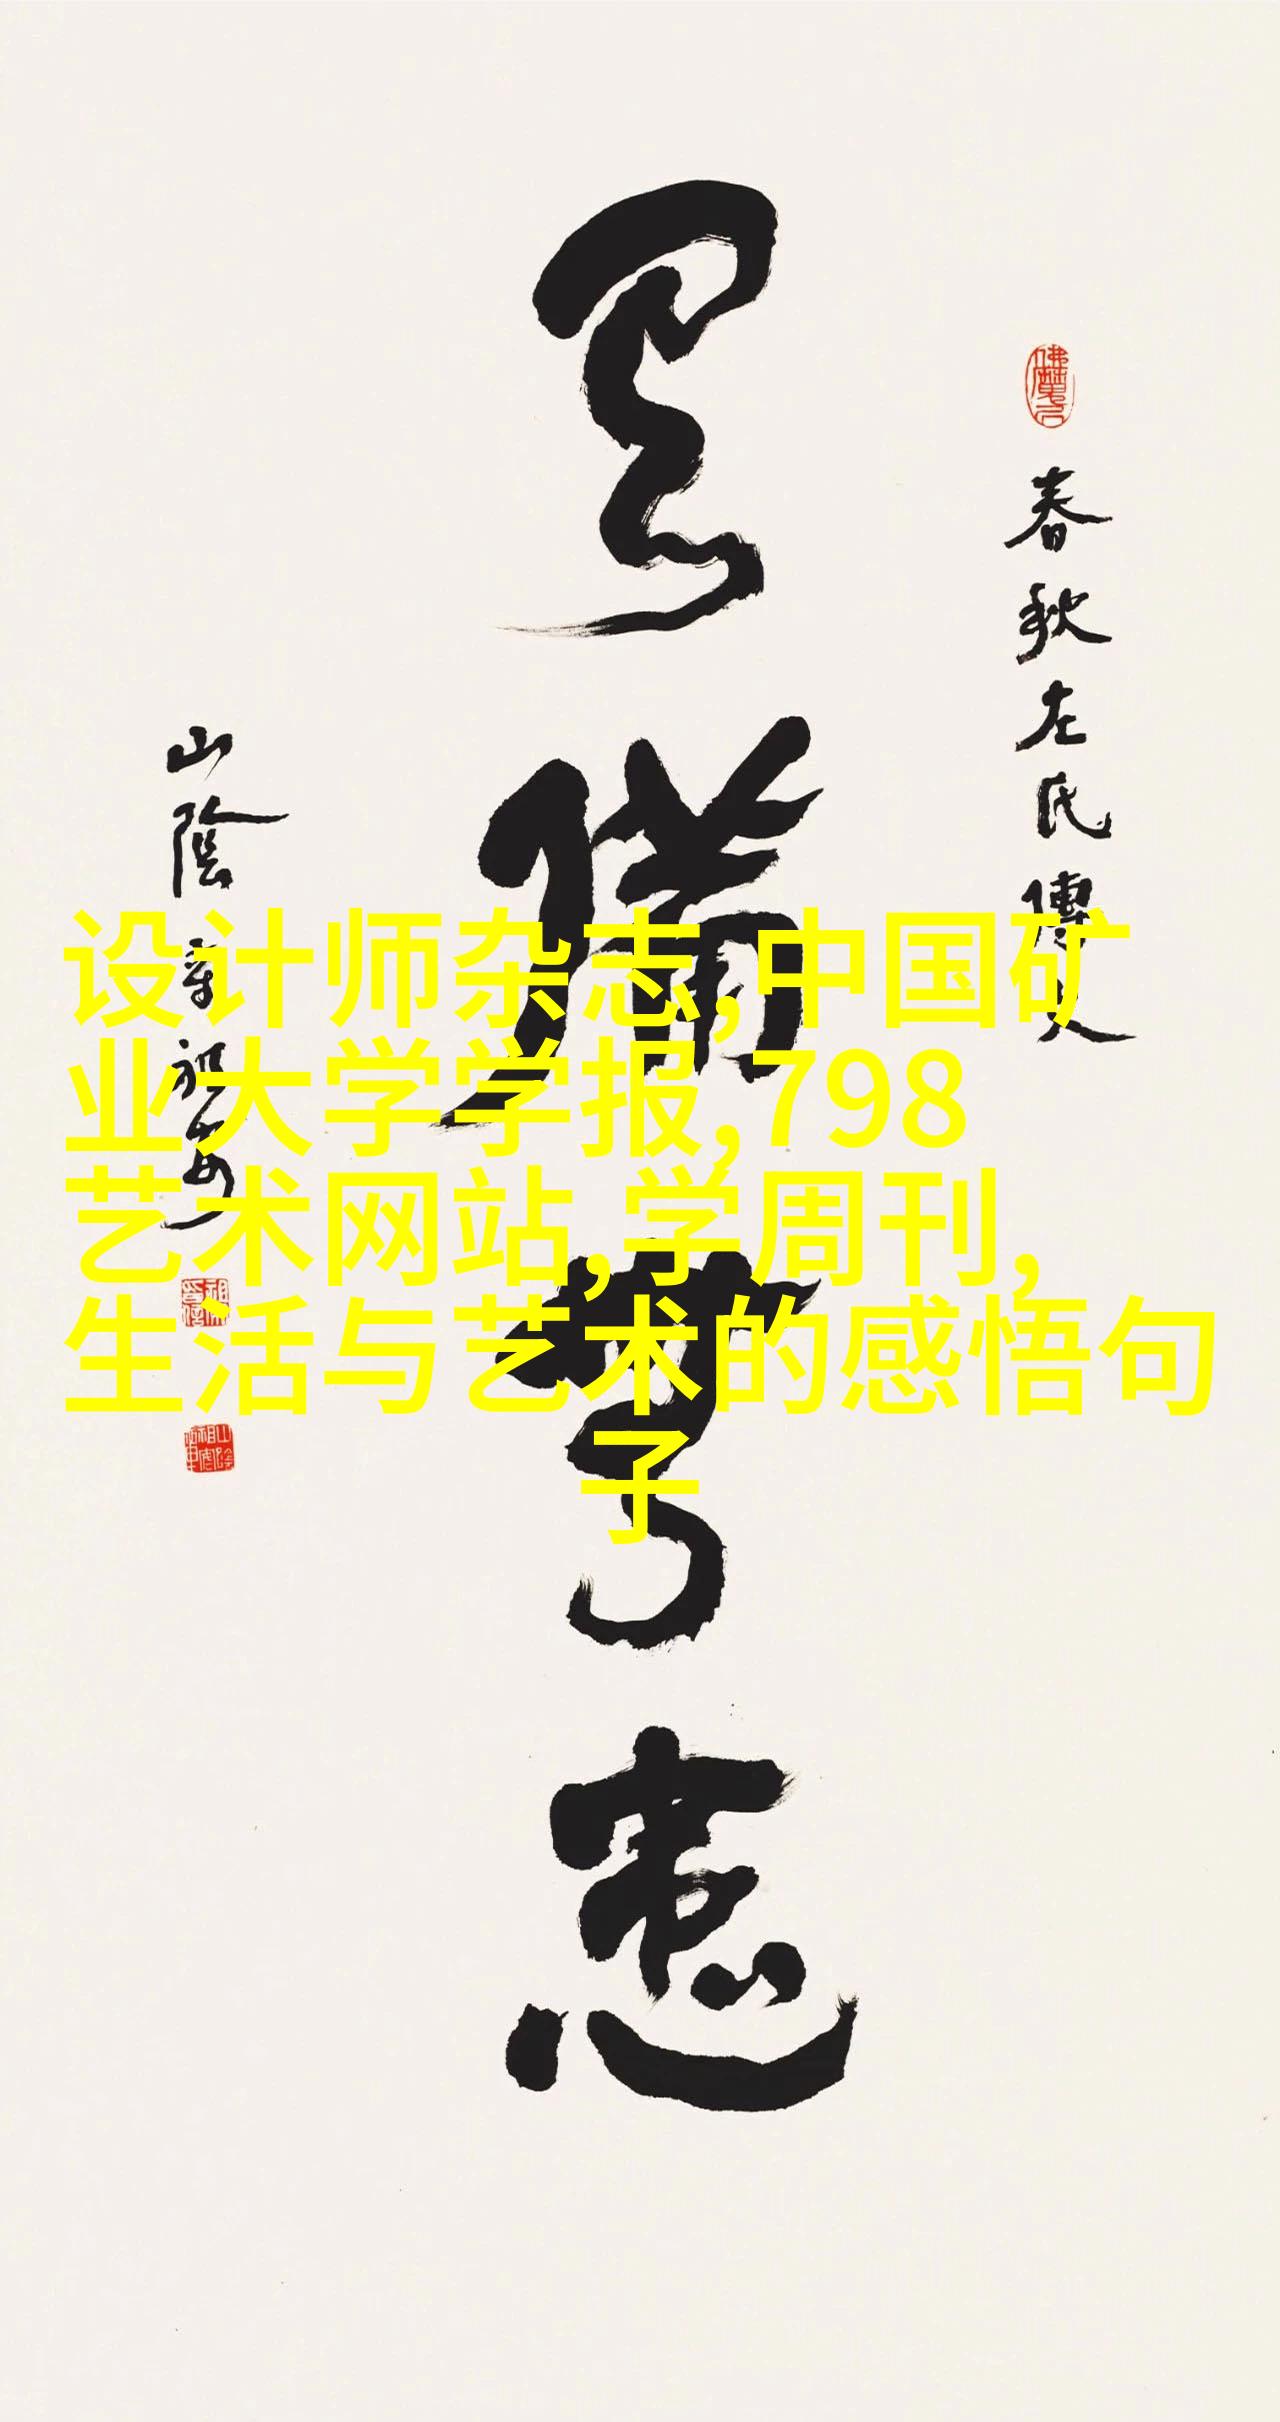 春秋左氏傳文
有備無患
山陰章祖安
设计师杂志,中国矿
业大学学报,798
艺术网站,学周刊,
生活与艺术的感悟句
子